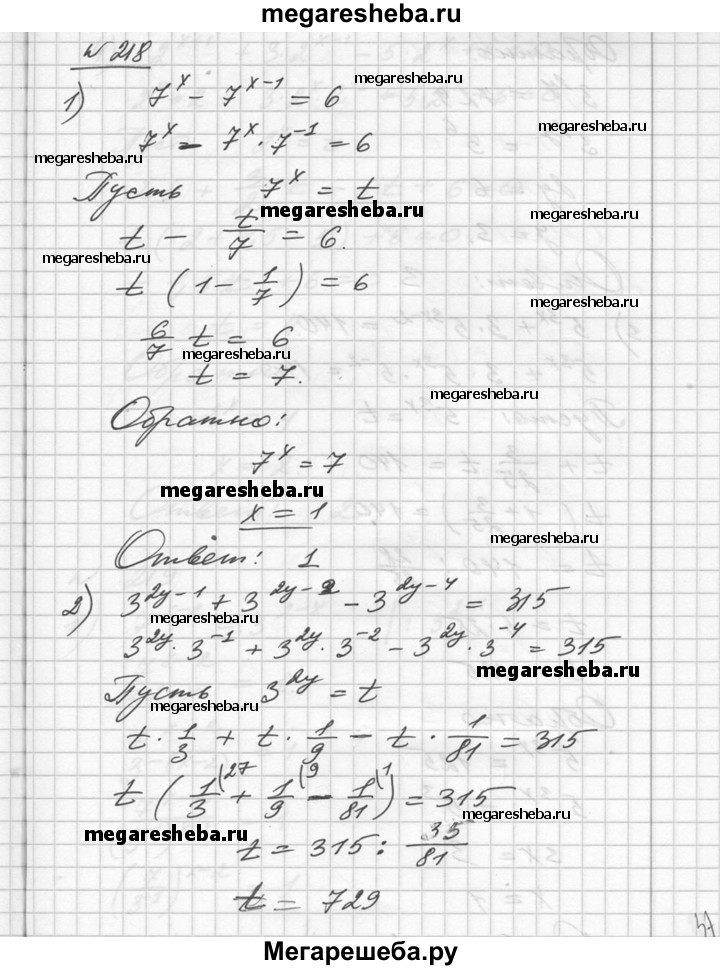 megaresheba.ru
№ 218
1) 7^x - 7^{x-1} = 6
megaresheba.ru
7^x - 7^x · 7^{-1} = 6
megaresheba.ru
megaresheba.ru
Пусть 7^x = t
megaresheba.ru
megaresheba.ru
t - t/7 = 6.
megaresheba.ru
t (1 - 1/7) = 6
megaresheba.ru
6/7 t = 6
megaresheba.ru
t = 7.
megaresheba.ru
Обратно:
7^x = 7
megaresheba.ru
x = 1
megaresheba.ru
Ответ: 1
2) 3^{2y-1} + 3^{2y-2} - 3^{2y-4} = 315
megaresheba.ru
3^{2y} · 3^{-1} + 3^{2y} · 3^{-2} - 3^{2y} · 3^{-4} = 315
megaresheba.ru
Пусть 3^{2y} = t
megaresheba.ru
t · 1/3 + t · 1/9 - t · 1/81 = 315
t (1/3 (27 + 1/9 (9 - 1/81 (1) = 315
megaresheba.ru
megaresheba.ru
t = 315 : 35/81
t = 729
Мегарешеба.ру